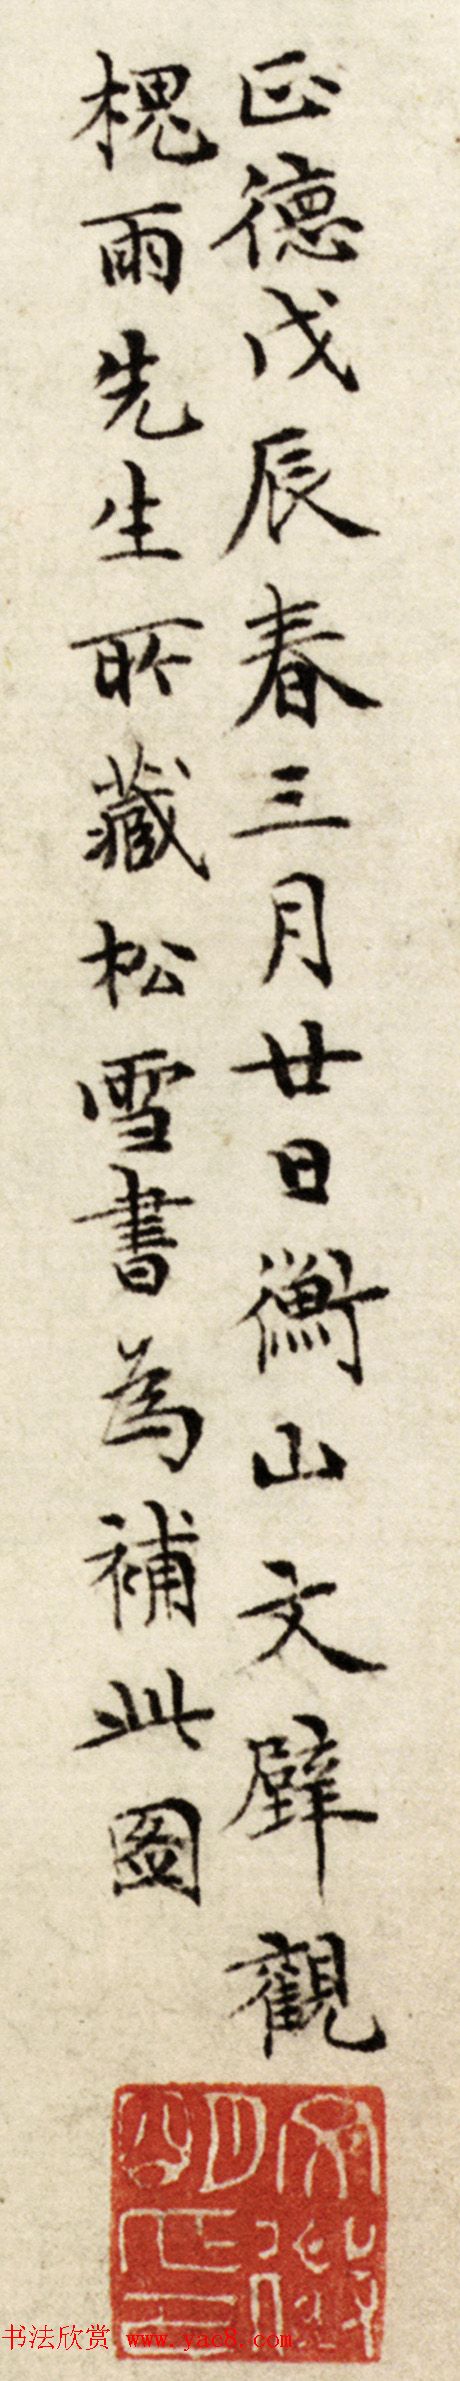 正德戊辰春三月廿日衡山文璧觀
槐雨先生所藏松雪書為補此圖
文璧
明印
书法欣赏 www.yac8.com